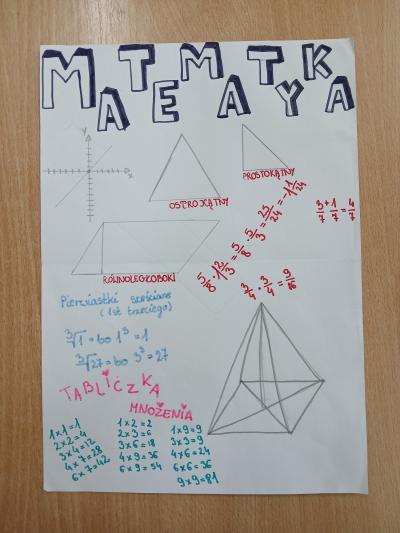 MATEMATYKA
y
x
OSTROKĄTNY
PROSTOKĄTNY
RÓWNOLEGŁOBOKI
5/8 · 1 2/3 = 5/8 · 5/3 = 25/24 = 1 1/24
3/7 + 1/7 = 4/7
3/4 · 3/4 = 9/16
Pierwiastki sześcienne
(1st trzeciego)
∛1 = bo 1³ = 1
∛27 = bo 3³ = 27
TABLICZKA
MNOŻENIA
1x1=1
2x2=4
3x4=12
4x7=28
6x7=42
1x2=2
2x3=6
3x6=18
4x9=36
6x9=54
1x9=9
3x3=9
4x6=24
6x6=36
9x9=81